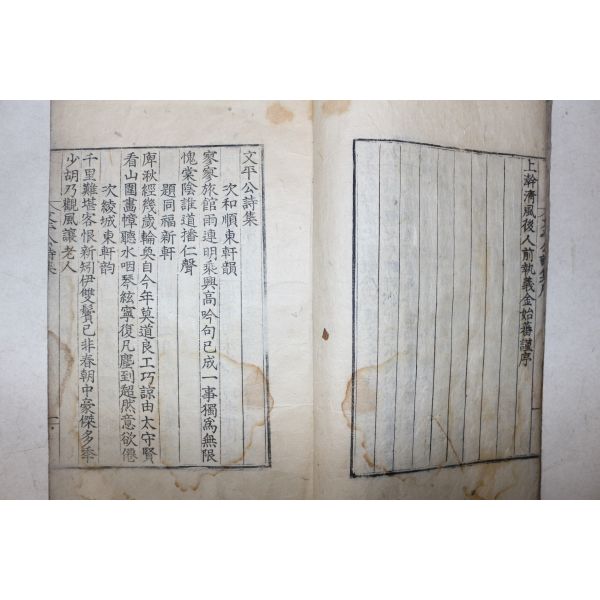 上澣清風後人前執義金始蕃謹序
文平公詩集
次和順東軒韻
寥寥旅館雨連明乘興高吟句已成一事獨爲無限
愧棠陰誰道播仁聲
題同福新軒
庳湫經幾歲輪奐自今年莫道良工巧諒由太守賢
看山圍畫幛聽水咽琴絃寧復凡塵到超然意欲僊
次綾城東軒韵
千里難堪客恨新矧伊雙鬢已非春朝中豪傑多年
少胡乃觀風讓老人